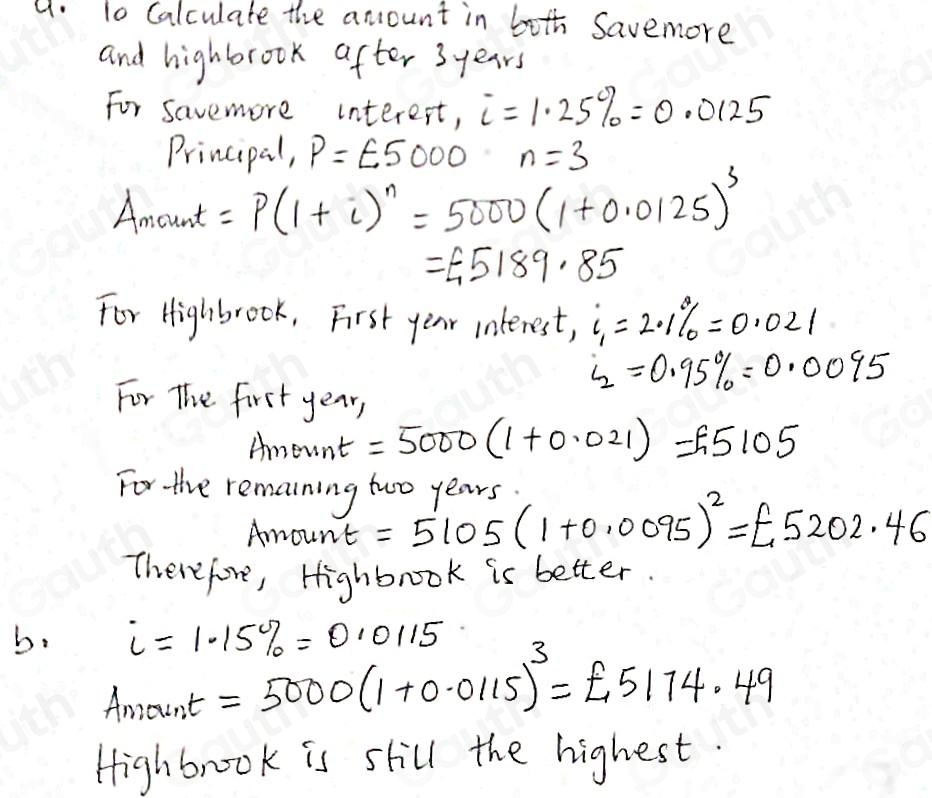 a. To Calculate the amount in both Savemore
and highbrook after 3 years
For Savemore interest, i = 1.25% = 0.0125
Principal, P = £5000 n = 3
Amount = P(1 + i)ⁿ = 5000(1 + 0.0125)³
= £5189.85
For Highbrook, First year interest, i₁ = 2.1% = 0.021
i₂ = 0.95% = 0.0095
For The first year,
Amount = 5000(1 + 0.021) = £5105
For the remaining two years.
Amount = 5105(1 + 0.0095)² = £5202.46
Therefore, Highbrook is better.
b. i = 1.15% = 0.0115
Amount = 5000(1 + 0.0115)³ = £5174.49
Highbrook is still the highest.